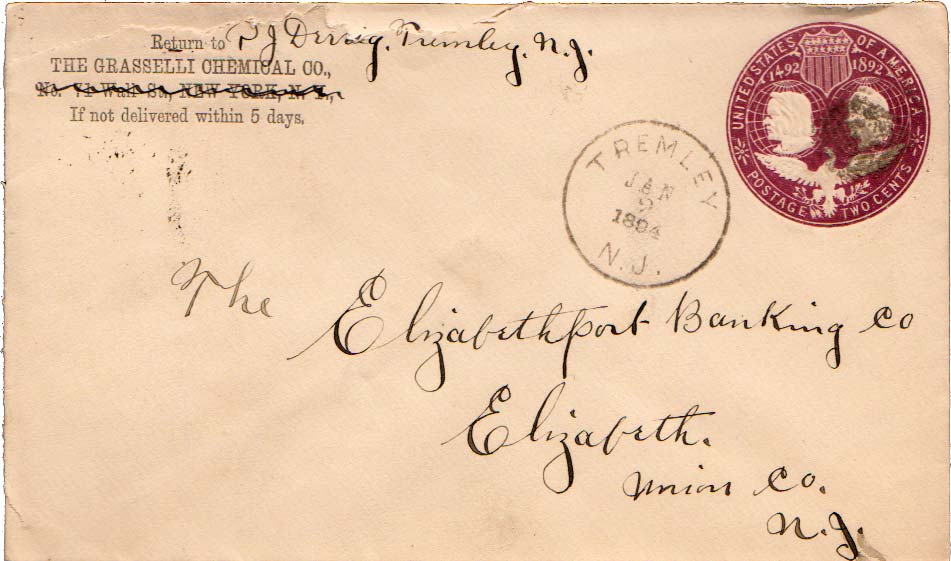 Return to P J Derrig, Tremley, N.J.
THE GRASSELLI CHEMICAL CO.,
No. Wall St., NEW YORK, N. Y.,
If not delivered within 5 days.
UNITED STATES OF AMERICA
1492 1892
POSTAGE TWO CENTS
TREMLEY
JAN
2
1894
N.J.
The Elizabethport Banking Co
Elizabeth.
Union Co.
N.J.